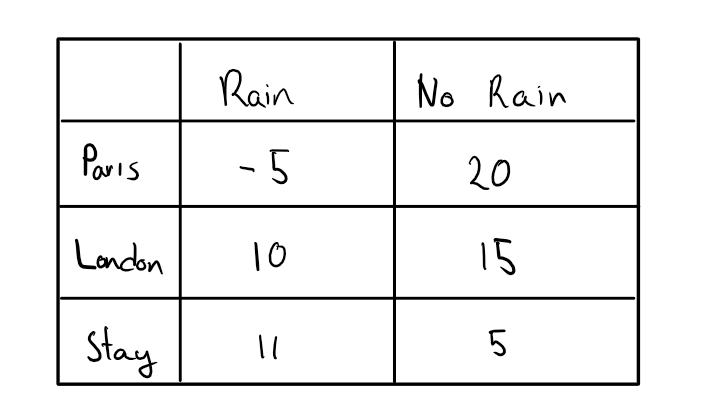 Rain No Rain
Paris -5 20
London 10 15
Stay 11 5